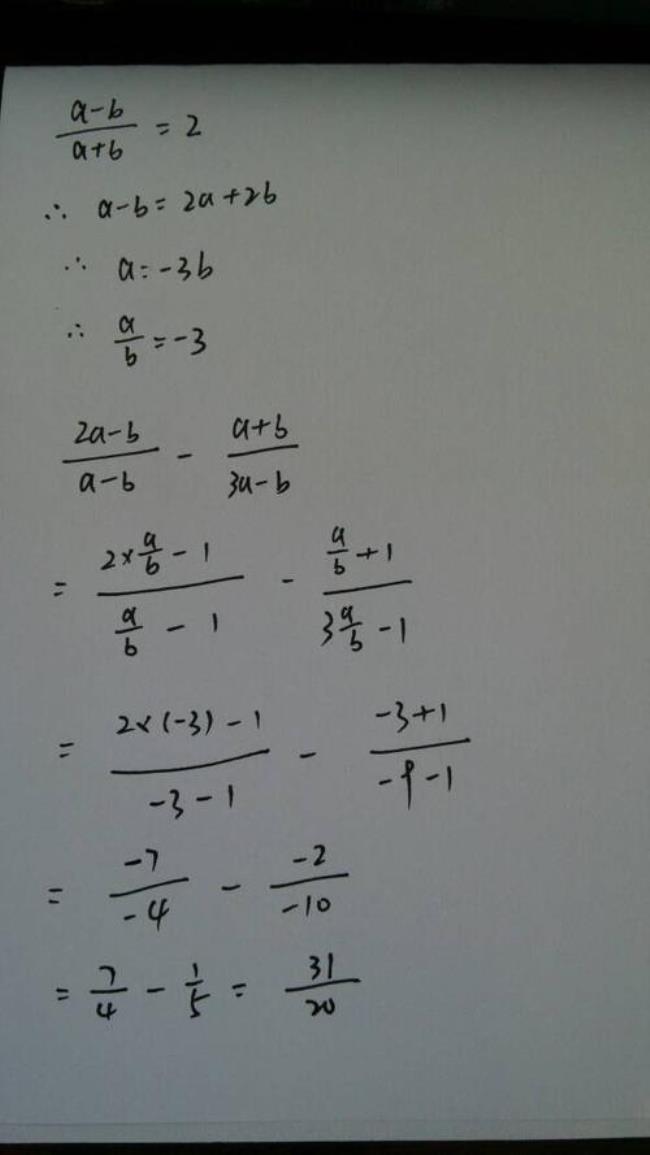 (a-b)/(a+b) = 2
∴ a-b = 2a+2b
∴ a = -3b
∴ a/b = -3
(2a-b)/(a-b) - (a+b)/(3a-b)
= (2×a/b - 1)/(a/b - 1) - (a/b + 1)/(3a/b - 1)
= (2×(-3) - 1)/(-3 - 1) - (-3+1)/(-9-1)
= -7/-4 - -2/-10
= 7/4 - 1/5 = 31/20